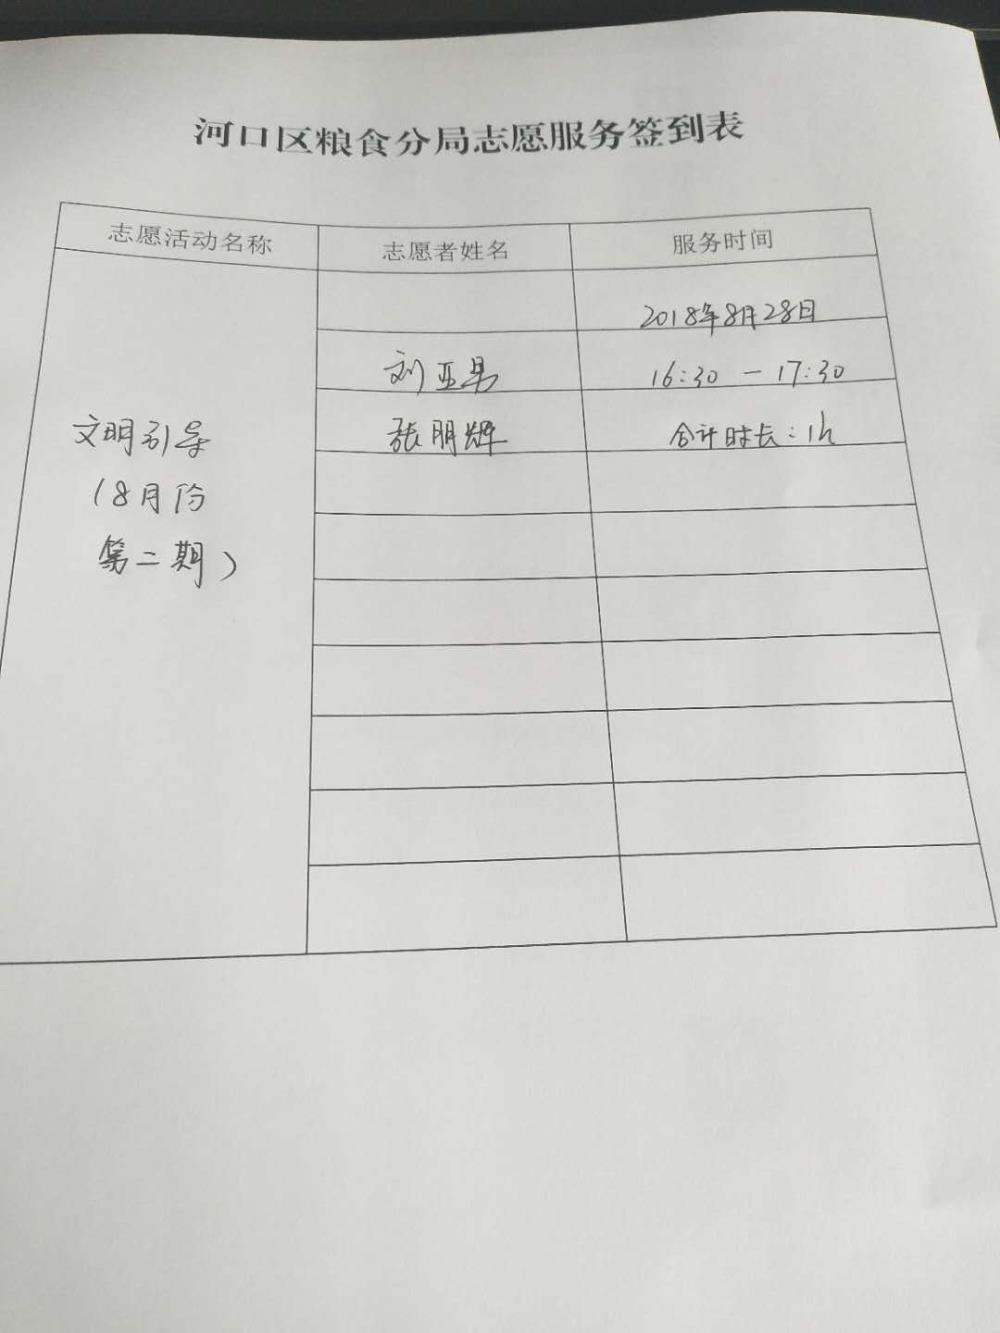 河口区粮食分局志愿服务签到表
志愿活动名称 志愿者姓名 服务时间
2018年8月28日
刘亚男 16:30 — 17:30
张朋辉 合计时长：1h
文明引导
（8月份
第二期）